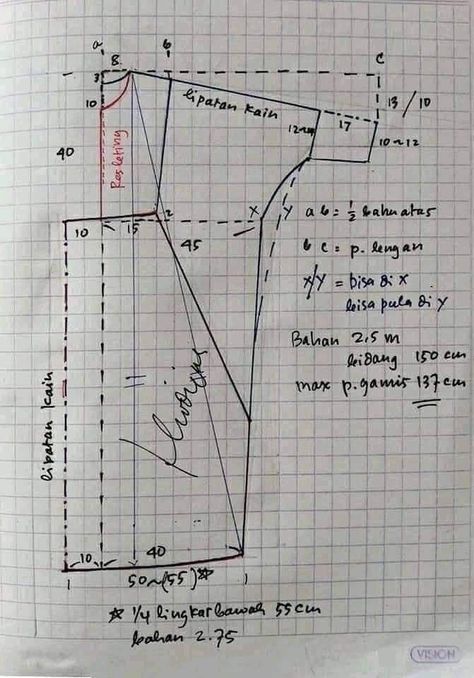 a
b
c
8
3
10
40
Resleting
lipatan kain
12~
17
13 / 10
10~12
10
15
2
45
X
Y
a b = ½ bahu atas
b c = p. lengan
X/Y = bisa di X
bisa pula di Y
Bahan 2,5 m
bidang 150 cm
max p. gamis 137 cm
lipatan kain
10
40
50~(55)☆
☆ ¼ lingkar bawah 55 cm
bahan 2.75
VISION